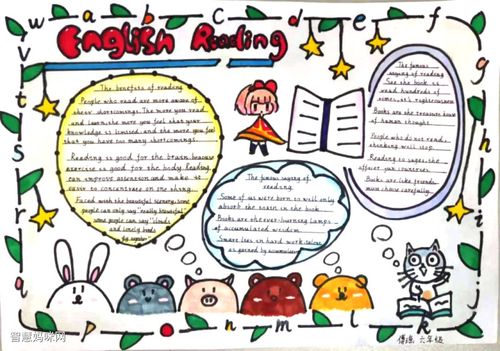 English Reading
w a b c d e f g h i j k l m n o p q r s t u v
The benefits of reading
People who read are more aware of
their shortcomings. The more you read
and learn, the more you feel that your
knowledge is limited, and the more you feel
that you have too many shortcomings.
Reading is good for the brain, because
exercise is good for the body. Reading
can improve attention and make it
easier to concentrate on one thing.
Faced with the beautiful scenery, some
people can only say "really beautiful",
some people can say "clouds
and lonely birds
fly together"
The famous saying of
reading.
Some of us were born is will only
absorb the rosin in the book
Books are the ever-burning Lamps
of accumulated wisdom.
Smart lies in hard work, talent
The famous
saying of reading
See the book is
read hundreds of
times, it's righteousness
Books are the treasure house
of human thought.
People who do not read,
thinking will stop.
Books are like friends,
must chose carefully.
六年级
智慧妈咪网